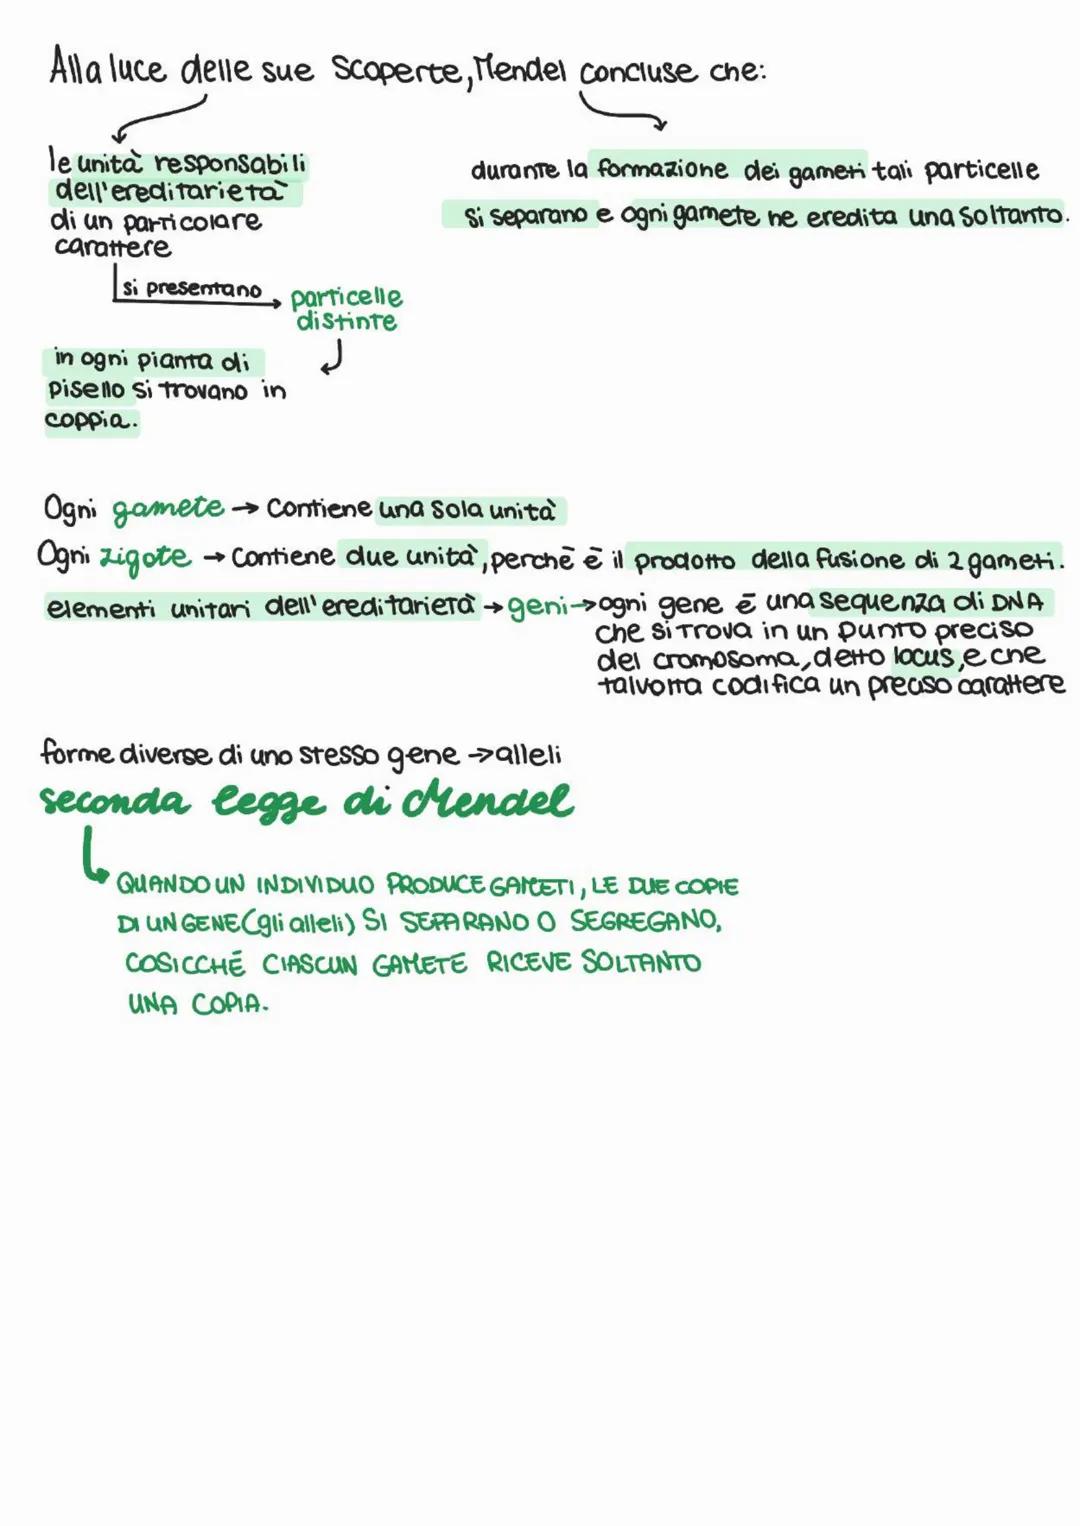 Alla luce delle sue scoperte, Mendel concluse che:
le unità responsabili
dell'ereditarietà
di un particolare
carattere
si presentano
particelle
distinte
in ogni pianta di
pisello si trovano in
coppia.
durante la formazione dei gameti tali particelle
si separano e ogni gamete ne eredita una soltanto.
Ogni gamete → contiene una sola unità
Ogni zigote → contiene due unità, perchē ē il prodotto della fusione di 2 gameti.
elementi unitari dell'ereditarietà → geni → ogni gene ē una sequenza di DNA
che si trova in un punto preciso
del cromosoma, detto locus, e che
talvolta codifica un preciso carattere
forme diverse di uno stesso gene → alleli
seconda legge di Mendel
QUANDO UN INDIVIDUO PRODUCE GAMETI, LE DUE COPIE
DI UN GENE (gli alleli) SI SEPARANO O SEGREGANO,
COSICCHĒ CIASCUN GAMETE RICEVE SOLTANTO
UNA COPIA.